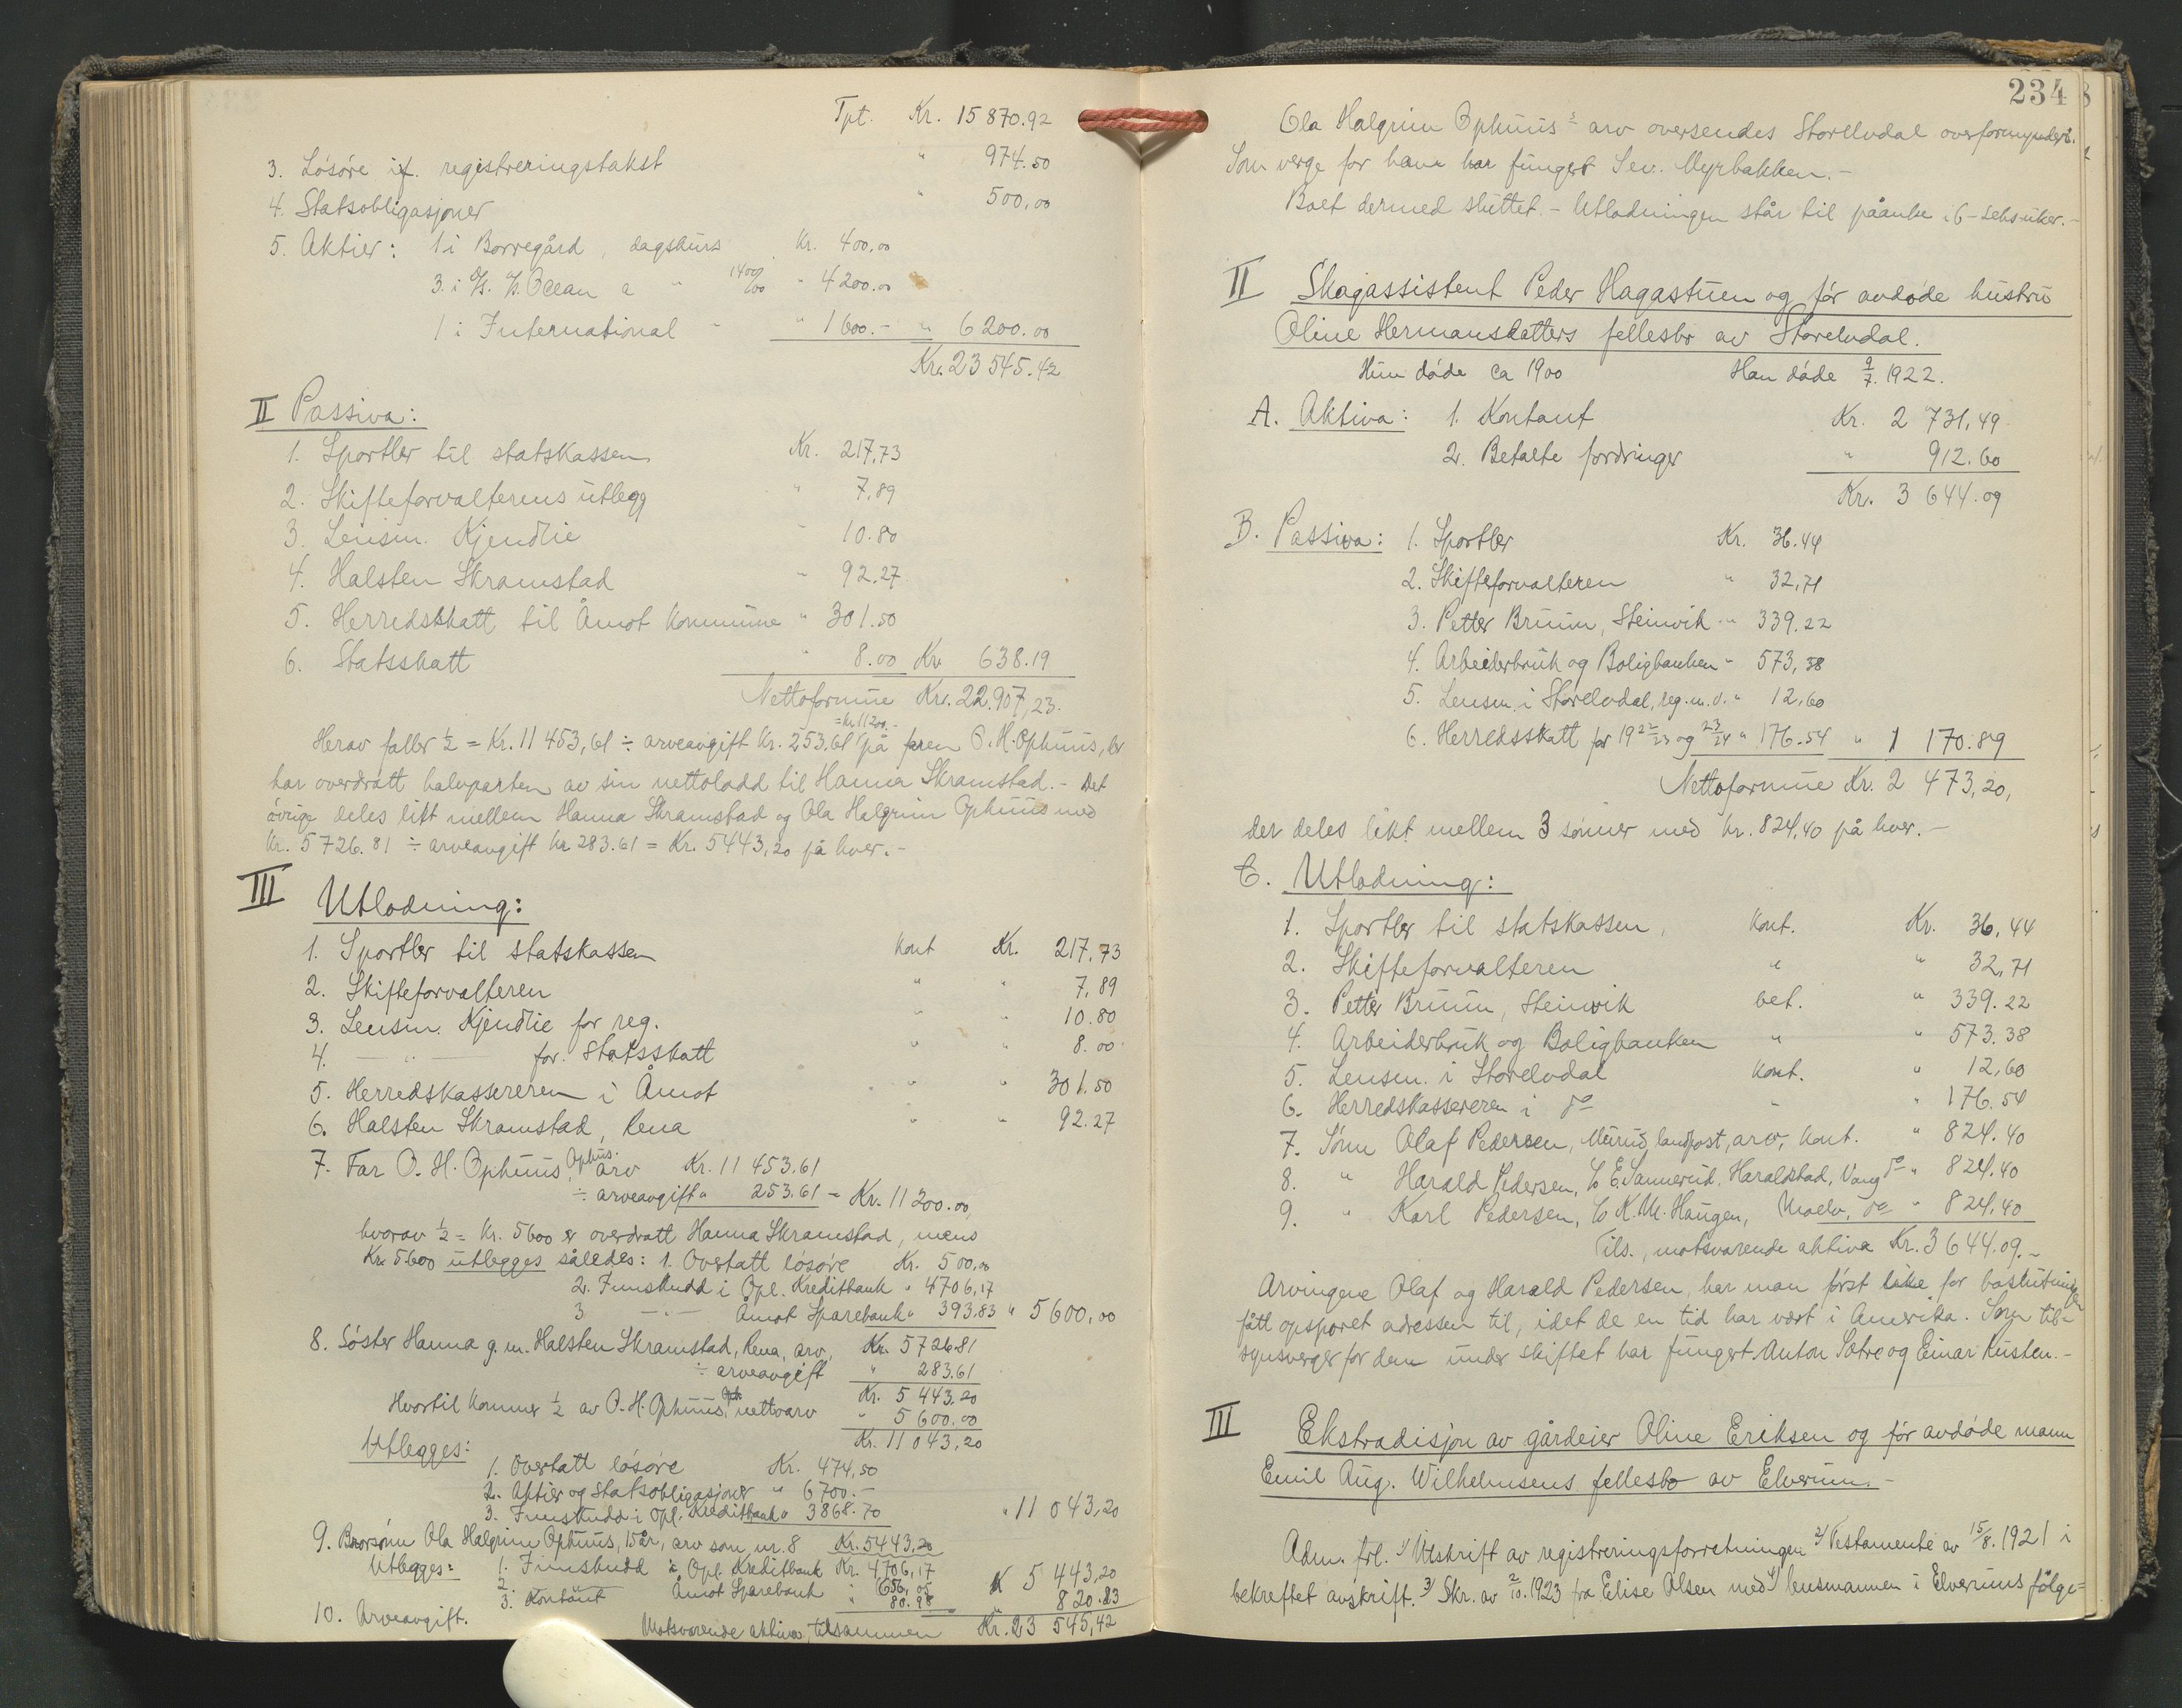 Tpt. Kr. 15870.92
3. Løsøre if. registreringstakst " 974.50
4. Statsobligasjoner " 500,00
5. Aktier: 1 i Borregård, dagskurs Kr. 400,00
3 i H. Ocean a " 1400/00 " 4200.00
1 i International " " 1600.- " 6200.00
Kr. 23545.42
II Passiva:
1. Sportler til statskassen Kr. 217,73
2. Skifteforvalterens utlegg " 7,89
3. Lensm. Kjendlie " 10.80
4. Halsten Skramstad " 92.27
5. Herredsskatt til Åmot kommune " 301.50
6. Statsskatt " 8.00 Kr. 638.19
Nettoformue Kr. 22.907,23.
= Kr. 11200.-
Herav faller ½ = Kr. 11453,61 ÷ arveavgift Kr. 253.61 på faren O. H. Ophuus, der
har overdratt halvparten av sin nettolodd til Hanna Skramstad. - Det
øvrige deles likt mellem Hanna Skramstad og Ola Halgrim Ophuus med
Kr. 5726.81 ÷ arveavgift kr 283.61 = Kr. 5443,20 på hver. -
III Utlodning:
1. Sportler til statskassen kont Kr. 217,73
2. Skifteforvalteren " " 7,89
3. Lensm. Kjendlie for reg. " " 10.80
4. — " — for Statsskatt " " 8.00
5. Herredskassereren i Åmot " " 301.50
6. Halsten Skramstad, Rena " " 92.27
7. Far O. H. Ophuus, Ophus. arv Kr. 11453.61
÷ arveavgift " 253.61 = Kr. 11200.00,
hvorav ½ = Kr. 5600 er overdratt Hanna Skramstad, mens
Kr. 5600 utlegges således: 1. Overtatt løsøre Kr. 500,00
2. Innskudd i Opl. Kreditbank " 4706,17
3 — " — Åmot Sparebank " 393.83 " 5600,00
8. Søster Hanna g. m. Halsten Skramstad, Rena, arv, Kr. 5726.81
÷ arveavgift " 283.61
Kr. 5443.20
Hvortil kommer ½ av O. H. Ophuus, Oph. nettoarv " 5600.00
Kr. 11043,20
Utlegges:
1. Overtatt løsøre Kr. 474,50
2. Aktier og Statsobligasjoner " 6700.-
3. Innskudd i Opl. Kreditbank " 3868.70 " 11043,20
9. Brorsønn Ola Halgrim Ophuus, 15 år, arv som nr. 8 Kr. 5443,20
Utlegges: 1. Innskudd i Opl. Kreditbank Kr. 4706,17
2. Åmot Sparebank " 656,05 K 5443,20
3. Kontant " 80.98
10. Arveavgift. " 820.83
Motsvarende aktiva, tilsammen Kr. 23545,42
234
Ola Halgrim Ophuus' arv oversendes Storelvdal overformynderi.
Som verge for ham har fungert Sev. Myrbakken. -
Boet dermed sluttet. - Utlodningen står til påanke i 6 - seks uker. -
II Skogassistent Peder Hagastuen og før avdøde hustru
Oline Hermansdatters fellesbo av Storelvdal.
Hun døde ca 1900 Han døde 9/7. 1922.
A. Aktiva: 1. Kontant Kr. 2731,49
2. Betalte fordringer " 912.60
Kr. 3644.09
B. Passiva: 1. Sportler Kr. 36.44
2. Skifteforvalteren " 32,71
3. Petter Bruun, Steinvik " 339.22
4. Arbeiderbruk og Boligbanken " 573,38
5. Lensm. i Storelvdal, reg. m. v. " 12,60
6. Herredsskatt for 1922/23 og 23/24 " 176.54 " 1170.89
Nettoformue Kr. 2473,20,
der deles likt mellem 3 sønner med kr. 824,40 på hver. -
C. Utlodning:
1. Sportler til statskassen, kont. Kr. 36,44
2. Skifteforvalteren " " 32,71
3. Petter Bruun, Steinvik bet. " 339.22
4. Arbeiderbruk og Boligbanken " " 573.38
5. Lensm. i Storelvdal kont. " 12,60
6. Herredskassereren i do " " 176.54
7. Sønn Olaf Pedersen, landpost, arv, kont. " 824.40
8. " Harald Pedersen, c/o E. Sannerud, Haraldstad, Vang do " 824.40
9. " Karl Pedersen, c/o K. M. Haugen, Moelv, do " 824,40
Tils., motsvarende aktiva Kr. 3644.09. -
Arvingene Olaf og Harald Pedersen, har man først like for boslutningen
fått opsporet adressen til, idet de en tid har vært i Amerika. Som til-
synsverger for dem under skiftet har fungert Anton Sætre og Einar Kusten. -
III Ekstradisjon av gårdeier Oline Eriksen og før avdøde mann
Emil Aug. Wilhelmsens fellesbo av Elverum. -
Adm. frl. 1/ Utskrift av registreringsforretningen 2/ Testamente av 15/8. 1921 i
bekreftet avskrift. 3/ Skr. av 2/10. 1923 fra Elise Olsen med 4/ lensmannen i Elverums følge-